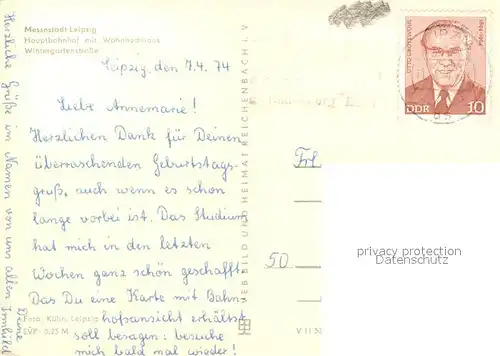 Messestadt Leipzig
Hauptbahnhof mit Wohnhochhaus
Wintergartenstraße
Leipzig, den 7.4.74
Liebe Annemarie!
Herzlichen Dank für Deinen
überraschenden Geburtstags-
gruß, auch wenn es schon
lange vorbei ist. Das Studium
hat mich in den letzten
Wochen ganz schön geschafft.
Das Du eine Karte mit Bahn-
hofsansicht erhältst
soll besagen: besuche
mich bald mal wieder!
Foto: Kühn, Leipzig
EVP: 0,25 M
Herzliche Grüße im Namen von uns allen
Deine
VEB BILD UND HEIMAT REICHENBACH I. V.
V 11 50
OTTO GROTEWOHL
DDR 10
Frl
50
privacy protection
Datenschutz